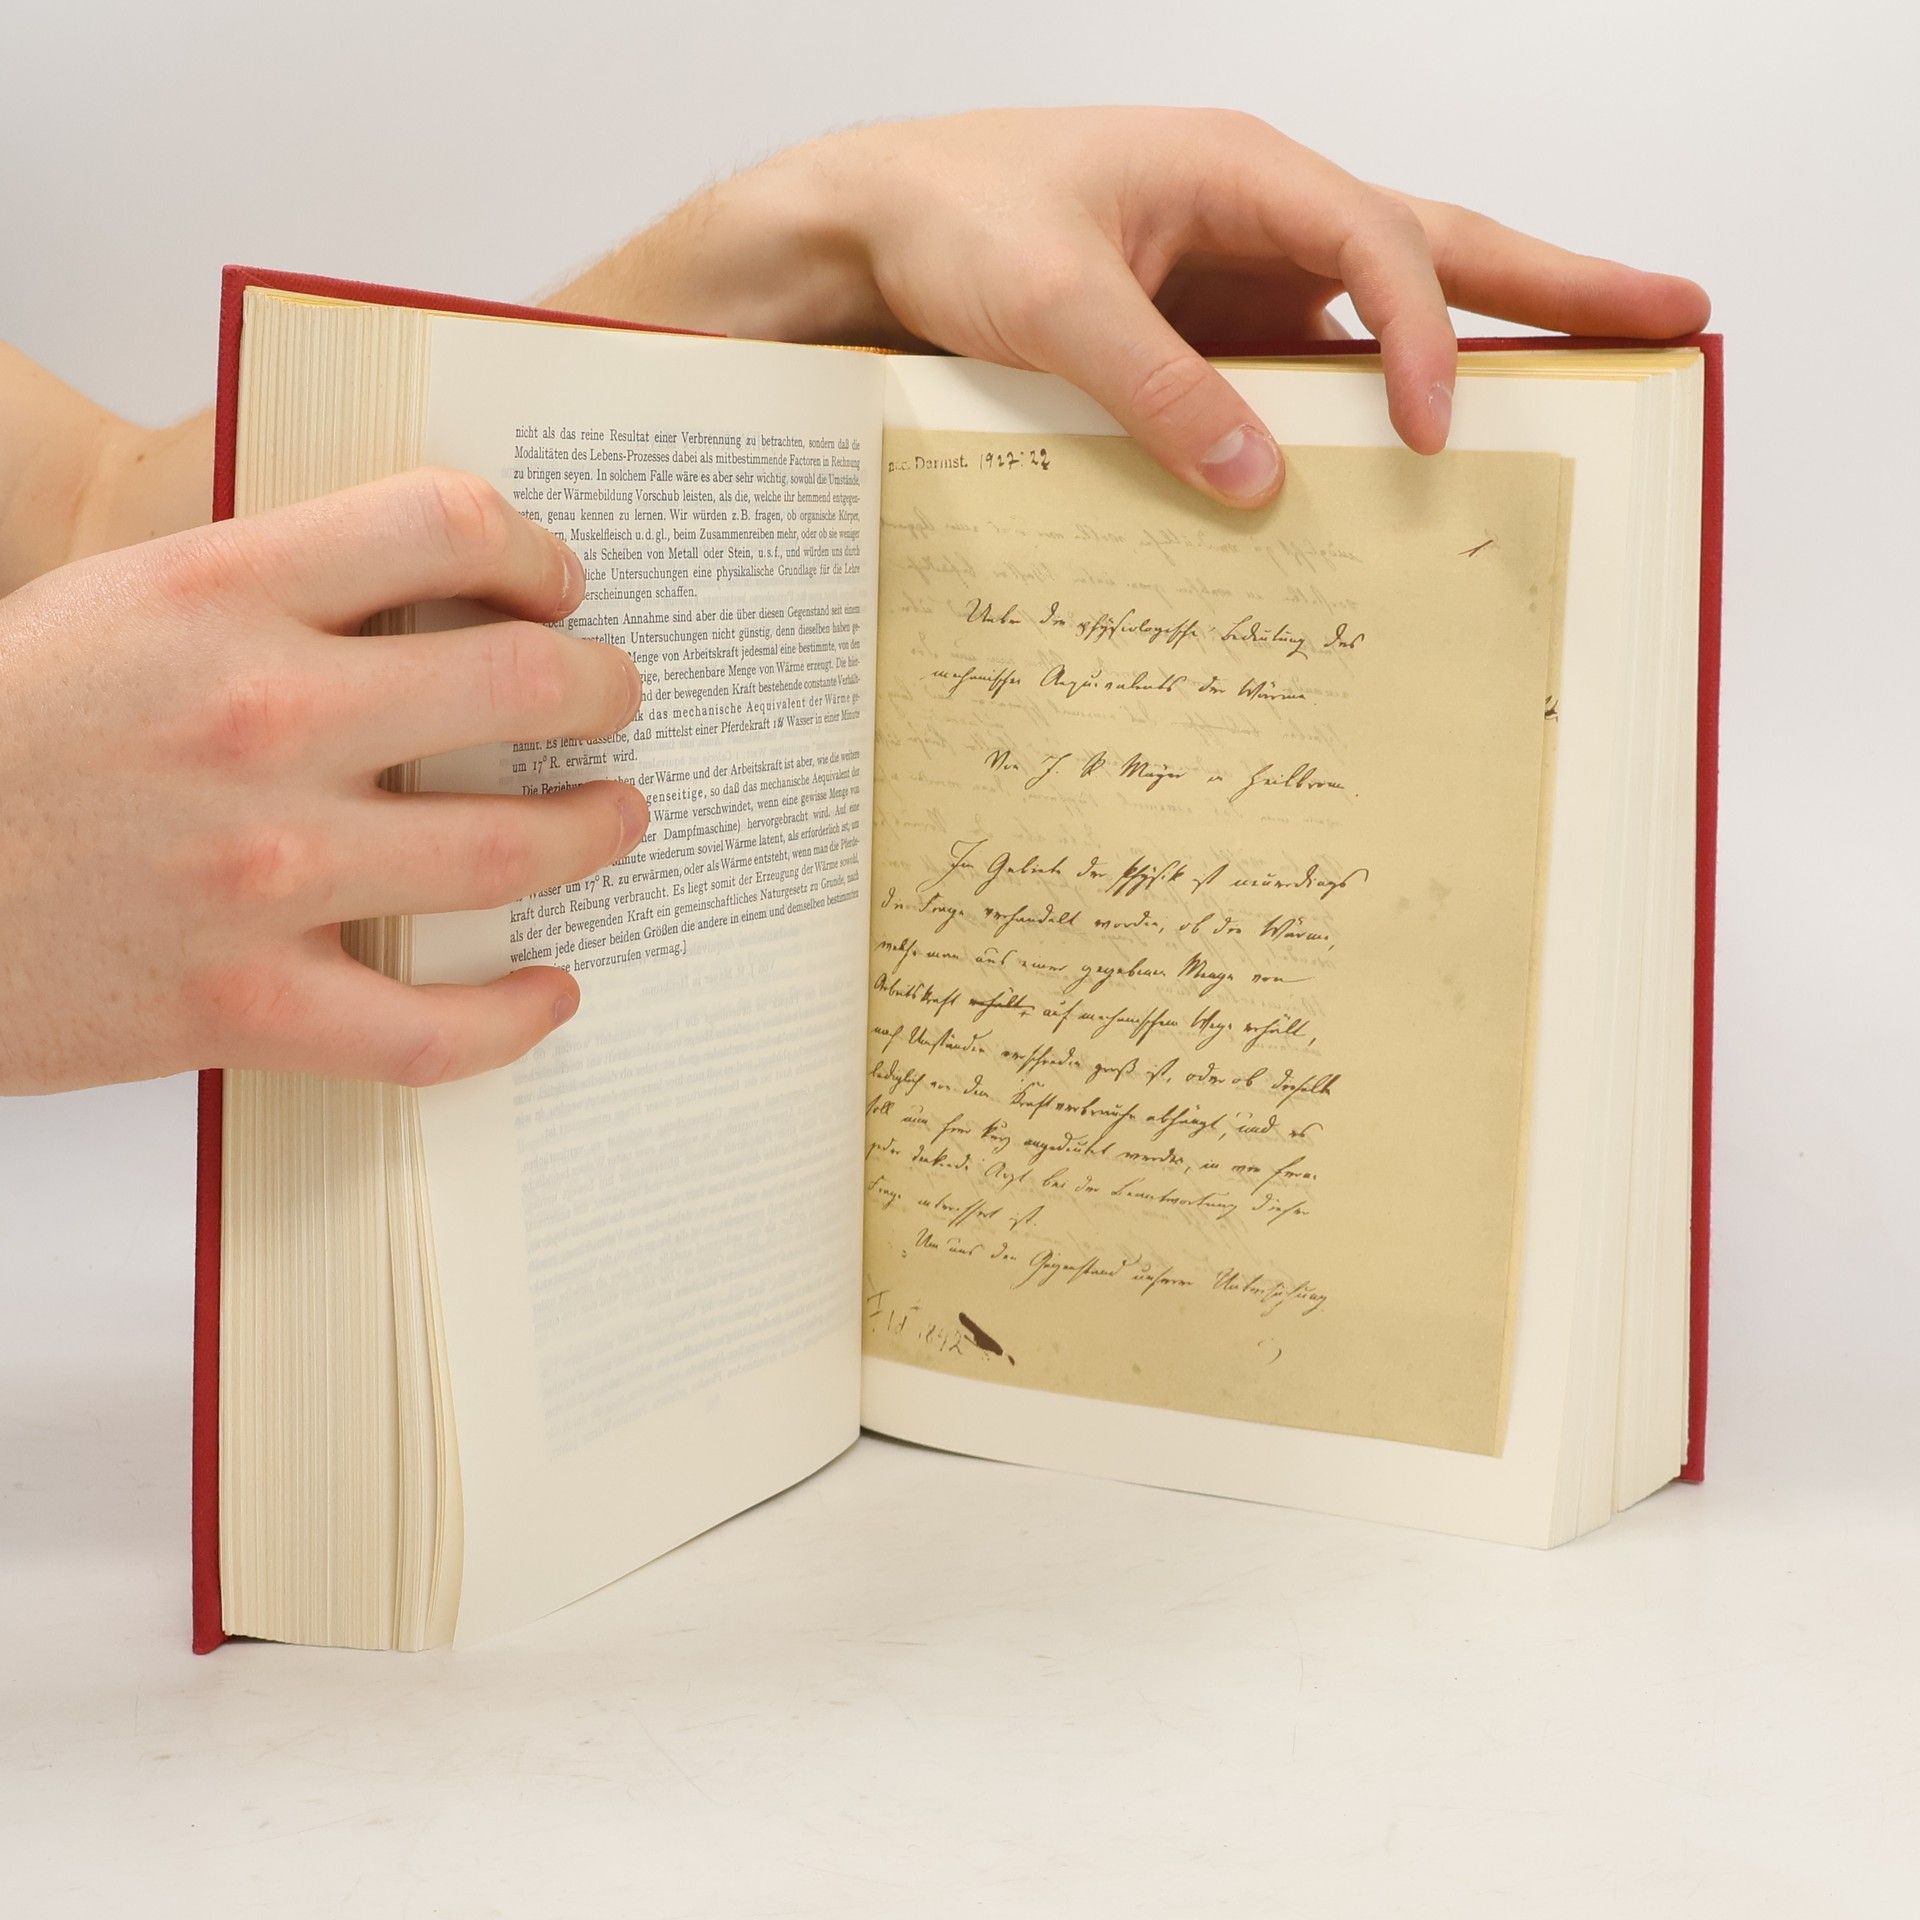 nicht als das reine Resultat einer Verbrennung zu betrachten, sondern daß die
Modalitäten des Lebens-Prozesses dabei als mitbestimmende Factoren in Rechnung
zu bringen seyen. In solchem Falle wäre es aber sehr wichtig, sowohl die Umstände,
welche der Wärmebildung Vorschub leisten, als die, welche ihr hemmend entgegen-
reten, genau kennen zu lernen. Wir würden z.B. fragen, ob organische Körper,
rn, Muskelfleisch u.d.gl., beim Zusammenreiben mehr, oder ob sie weniger
als Scheiben von Metall oder Stein, u.s.f., und würden uns durch
liche Untersuchungen eine physikalische Grundlage für die Lehre
erscheinungen schaffen.
ben gemachten Annahme sind aber die über diesen Gegenstand seit einem
gestellten Untersuchungen nicht günstig, denn dieselben haben ge-
Menge von Arbeitskraft jedesmal eine bestimmte, von den
gige, berechenbare Menge von Wärme erzeugt. Die hier-
nd der bewegenden Kraft bestehende constante Verhält-
k das mechanische Aequivalent der Wärme ge-
nannt. Es lehrt dasselbe, daß mittelst einer Pferdekraft 1 Wasser in einer Minute
um 17° R. erwärmt wird.
Die Beziehun zwischen der Wärme und der Arbeitskraft ist aber, wie die weitere
genseitige, so daß das mechanische Aequivalent der
Wärme verschwindet, wenn eine gewisse Menge von
ner Dampfmaschine) hervorgebracht wird. Auf eine
Minute wiederum soviel Wärme latent, als erforderlich ist, um
Wasser um 17° R. zu erwärmen, oder als Wärme entsteht, wenn man die Pferde-
kraft durch Reibung verbraucht. Es liegt somit der Erzeugung der Wärme sowohl,
als der der bewegenden Kraft ein gemeinschaftliches Naturgesetz zu Grunde, nach
welchem jede dieser beiden Größen die andere in einem und demselben bestimmten
sse hervorzurufen vermag.]
acc. Darmst. 1927.22
1
Ueber die physiologische Bedeutung des
mechanischen Aequivalents der Wärme.
Von J. R. Mayer in Heilbronn.
Im Gebiete der Physik ist neuerdings
die Frage verhandelt worden, ob die Wärme,
welche man aus einer gegebenen Menge von
Arbeitskraft erhält, auf mechanischem Wege erhält,
nach Umständen verschieden groß ist, oder ob dieselbe
lediglich von dem Kraftverbrauche abhängt, und es
soll nun hier kurz angedeutet werden, in wie ferne
jeder denkende Arzt bei der Beantwortung dieser
Frage interessirt ist.
Um uns den Gegenstand unserer Untersuchung
1842